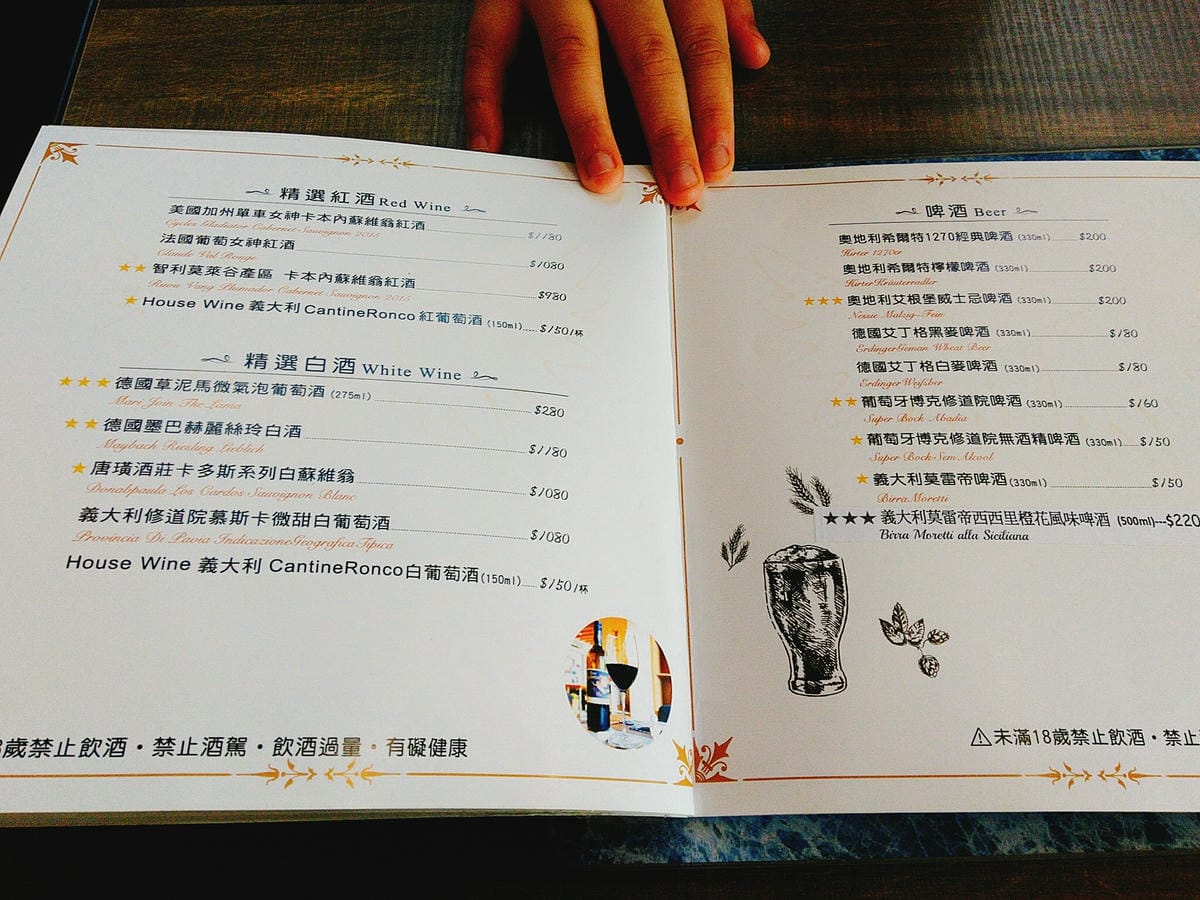 精選紅酒 Red Wine
美國加州單車女神卡本內蘇維翁紅酒 $1180
Cycles Gladiator Cabernet Sauvignon 2015
法國葡萄女神紅酒 $1080
Claude Val Rouge
★★ 智利莫萊谷產區 卡本內蘇維翁紅酒 $980
Plumador Cabernet Sauvignon 2015
★ House Wine 義大利 CantineRonco 紅葡萄酒 (150ml) $150/杯
精選白酒 White Wine
★★★ 德國草泥馬微氣泡葡萄酒 (275ml) $280
Mari Join The Lama
★★ 德國墨巴赫麗絲玲白酒 $1180
Maybach Riesling Lieblich
★ 唐璜酒莊卡多斯系列白蘇維翁 $1080
Donalpaula Los Cardos Sauvignon Blanc
義大利修道院慕斯卡微甜白葡萄酒 $1080
Provincia Di Pavia IndicazioneGeografica Tipica
House Wine 義大利 CantineRonco白葡萄酒(150ml) $150/杯
歲禁止飲酒・禁止酒駕・飲酒過量・有礙健康
啤酒 Beer
奧地利希爾特1270經典啤酒 (330ml) $200
Hirter 1270er
奧地利希爾特檸檬啤酒 (330ml) $200
HirterKräuterradler
★★★ 奧地利艾根堡威士忌啤酒 (330ml) $200
Nessie Malzig-Fein
德國艾丁格黑麥啤酒 (330ml) $180
ErdingerGeman Wheat Beer
德國艾丁格白麥啤酒 (330ml) $180
ErdingerWeißber
★★ 葡萄牙博克修道院啤酒 (330ml) $160
Super Bock Abadia
★ 葡萄牙博克修道院無酒精啤酒 (330ml) $150
Super Bock Sem Alcool
★ 義大利莫雷帝啤酒(330ml) $150
Birra Moretti
★★★ 義大利莫雷帝西西里橙花風味啤酒 (500ml)---$220
Birra Moretti alla Siciliana
⚠未滿18歲禁止飲酒・禁止